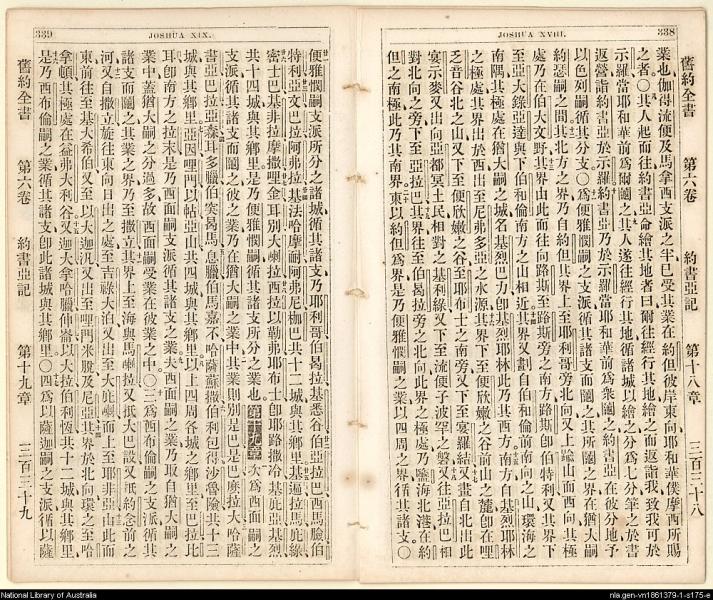 338
JOSHUA XVIII.
舊約全書 第六卷 約書亞記 第十八章 三百三十八
業也伽得流便及馬拿西支派之半已受其業在約但彼岸東向耶和華僕摩西所賜
之者○其人起而往約書亞命繪其地者曰爾往經行其地繪之而返詣我致我可於
示羅當耶和華前為爾鬮之其人遂往經行其地循諸城以繪之分為七分筆之於書
返營詣約書亞於示羅約書亞乃於示羅當耶和華前為衆鬮之約書亞在彼分地予
以色列嗣循其分支○為便雅憫嗣之支派循其諸支而鬮之其所鬮之界在猶大嗣
約瑟嗣之間其北方之界乃自約但其界上至耶利哥旁北向又上山而西向其極
處乃在伯大文野其界由此而往向路斯至路斯旁之南方路斯即伯特利又其界下
至亞大錄亞達與下伯和倫南方之山相近其界又劃自伯和倫前南向之山環海之
南隅其極處在猶大嗣之城名基烈巴力即基烈耶林此乃其西方南方自基烈耶林
之極處其界出於西出至尼弗多亞之水源其界下至便欣嫩谷前山之麓即在哩
乏音谷北之山又下至便欣嫩之谷至耶布士之南旁又下至宴羅結又畫自北出此
宴示麥又出向亞都冥土民相對之基利綠又下至流便子波罕之磐又往亞拉巴相
對北向之旁下至亞拉巴其界往至伯曷拉旁之北向此界之極處乃鹽海北港在約
但之南極此乃其南界東以約但為界是乃便雅憫嗣之業以四周之界循其諸支○
339
JOSHUA XIX.
便雅憫嗣支派所分之諸城循其諸支乃耶利哥伯曷拉基悉谷伯亞拉巴西馬臉伯
特利亞文巴拉阿弗拉基法哈摩耐阿弗尼枷巴共十二城與其鄉里基遍拉馬庇綠
密士巴基非拉摩撒哩金耳別大喇拉西拉以勒弗耶布士即耶路撒冷基庇亞基烈
共十四城與其鄉里是乃便雅憫嗣循其諸支所分之業也第十九章次為西面嗣之
支派循其諸支而鬮之彼之業乃在猶大嗣之業中其業則別是巴是巴摩拉大哈薩
書亞巴拉亞森耳多臘伯突曷馬息臘伯馬嘉不哈薩蘇撒伯利包得沙魯險共十三
城與其鄉里亞因哩門以帖亞山共四城與其鄉里以上四周各城之鄉里至巴拉比
耳即南方之拉末是乃西面嗣支派循其諸支之業夫西面嗣之業乃取自猶大嗣之
業中蓋猶大嗣之分過多故西面嗣受業在彼業之中○三為西布倫嗣之支派循其
諸支而鬮之其業之界乃至撒立其界上至海與馬喇拉又抵大巴設又抵約念前之
河又自撒立旋往東向日出之處至吉祿大泊又出至大庇喇而上至耶非亞由此而
東前往至基大希伯又至以大迦汎又出至哩門米脫及尼亞其界於北向環之至哈
拿頓其極處在益弗大利谷又迦大拿哈臘伸崙以大拉伯利恆共十二城與其鄉里
是乃西布倫嗣之業循其諸支即此諸城與其鄉里○四為以薩迦嗣之支派循以薩
舊約全書 第六卷 約書亞記 第十九章 三百三十九
National Library of Australia
nla.gen-vn1861379-1-s175-e